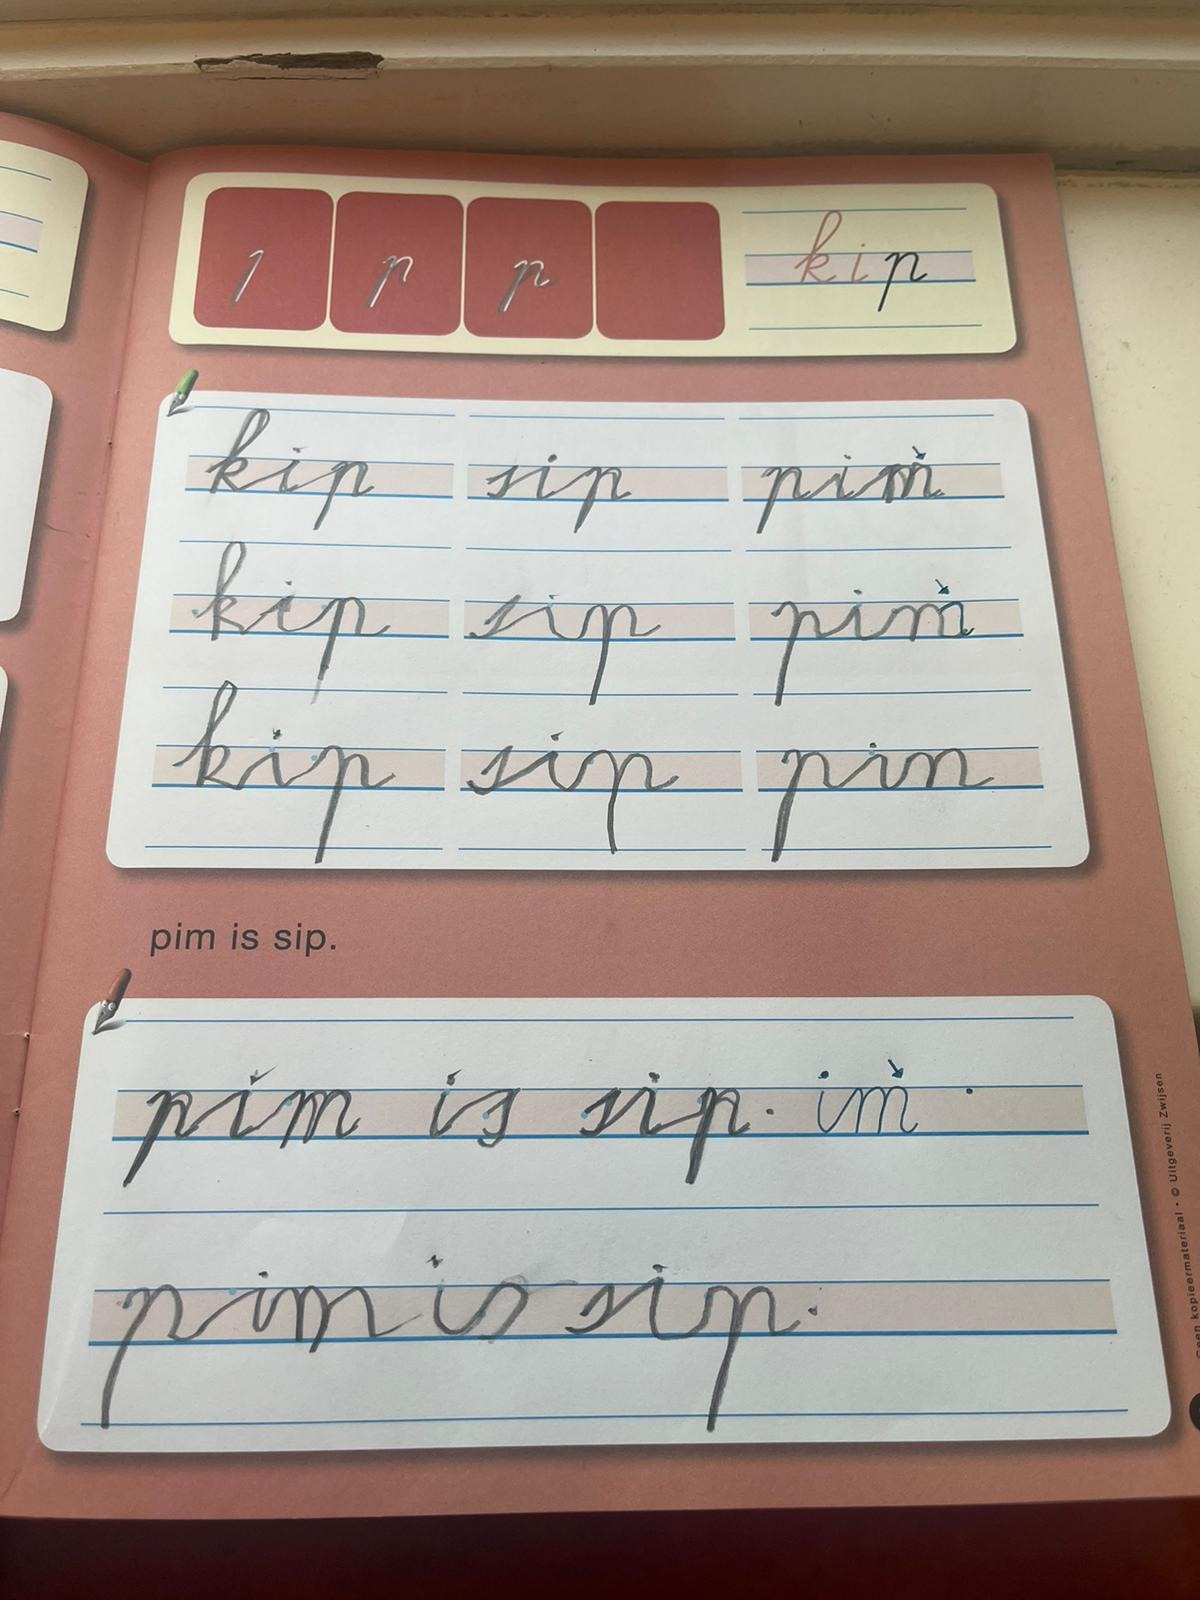 1 p p kip
kip sip pim
kip sip pim
kip sip pin
pim is sip.
pim is sip. im .
pim is sip.
Geen kopieermateriaal • © Uitgeverij Zwijsen